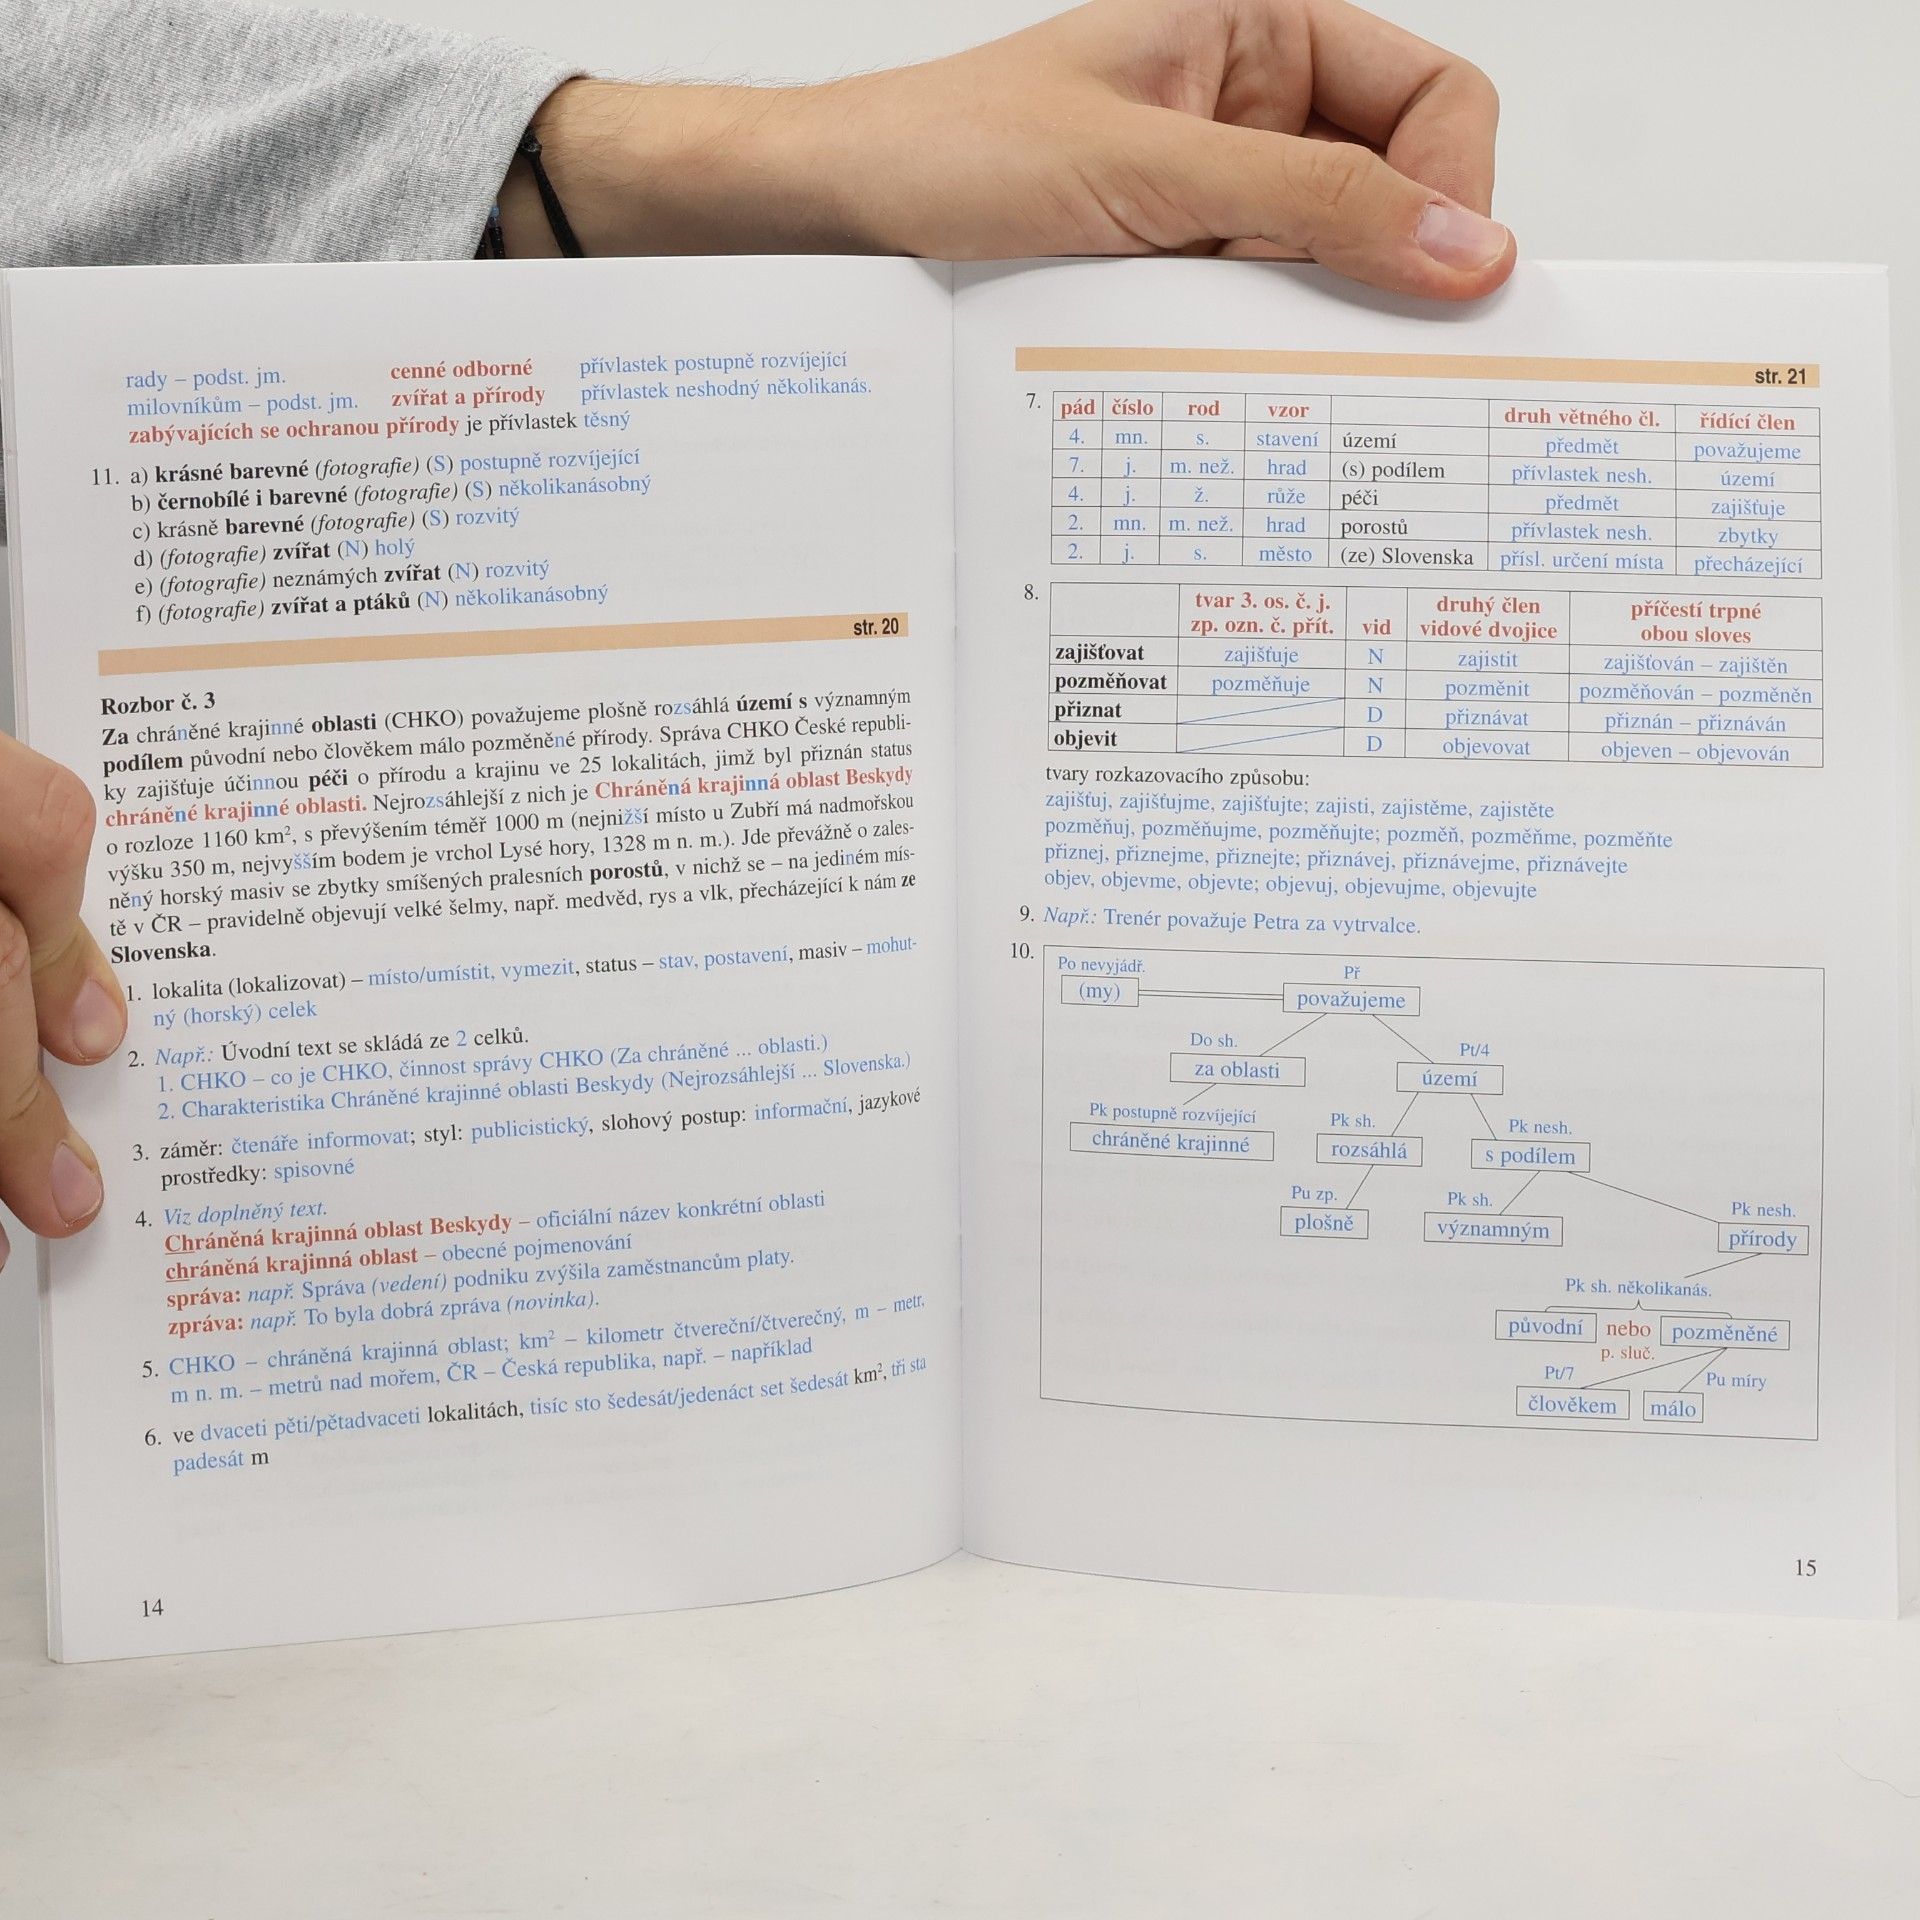 rady – podst. jm. cenné odborné přívlastek postupně rozvíjející
milovníkům – podst. jm. zvířat a přírody přívlastek neshodný několikanás.
zabývajících se ochranou přírody je přívlastek těsný
11. a) krásné barevné (fotografie) (S) postupně rozvíjející
b) černobílé i barevné (fotografie) (S) několikanásobný
c) krásně barevné (fotografie) (S) rozvitý
d) (fotografie) zvířat (N) holý
e) (fotografie) neznámých zvířat (N) rozvitý
f) (fotografie) zvířat a ptáků (N) několikanásobný
str. 20
Rozbor č. 3
Za chráněné krajinné oblasti (CHKO) považujeme plošně rozsáhlá území s významným
podílem původní nebo člověkem málo pozměněné přírody. Správa CHKO České republi-
ky zajišťuje účinnou péči o přírodu a krajinu ve 25 lokalitách, jimž byl přiznán status
chráněné krajinné oblasti. Nejrozsáhlejší z nich je Chráněná krajinná oblast Beskydy
o rozloze 1160 km², s převýšením téměř 1000 m (nejnižší místo u Zubří má nadmořskou
výšku 350 m, nejvyšším bodem je vrchol Lysé hory, 1328 m n. m.). Jde převážně o zales-
něný horský masiv se zbytky smíšených pralesních porostů, v nichž se – na jediném mís-
tě v ČR – pravidelně objevují velké šelmy, např. medvěd, rys a vlk, přecházející k nám ze
Slovenska.
1. lokalita (lokalizovat) – místo/umístit, vymezit, status – stav, postavení, masiv – mohut-
ný (horský) celek
2. Např.: Úvodní text se skládá ze 2 celků.
1. CHKO – co je CHKO, činnost správy CHKO (Za chráněné ... oblasti.)
2. Charakteristika Chráněné krajinné oblasti Beskydy (Nejrozsáhlejší ... Slovenska.)
3. záměr: čtenáře informovat; styl: publicistický, slohový postup: informační, jazykové
prostředky: spisovné
4. Viz doplněný text.
Chráněná krajinná oblast Beskydy – oficiální název konkrétní oblasti
chráněná krajinná oblast – obecné pojmenování
správa: např. Správa (vedení) podniku zvýšila zaměstnancům platy.
zpráva: např. To byla dobrá zpráva (novinka).
5. CHKO – chráněná krajinná oblast; km² – kilometr čtvereční/čtverečný, m – metr,
m n. m. – metrů nad mořem, ČR – Česká republika, např. – například
6. ve dvaceti pěti/pětadvaceti lokalitách, tisíc sto šedesát/jedenáct set šedesát km², tři sta
padesát m
14
str. 21
7. pád číslo rod vzor druh větného čl. řídící člen
4. mn. s. stavení území předmět považujeme
7. j. m. než. hrad (s) podílem přívlastek nesh. území
4. j. ž. růže péči předmět zajišťuje
2. mn. m. než. hrad porostů přívlastek nesh. zbytky
2. j. s. město (ze) Slovenska přísl. určení místa přecházející
8. tvar 3. os. č. j. druhý člen příčestí trpné
zp. ozn. č. přít. vid vidové dvojice obou sloves
zajišťovat zajišťuje N zajistit zajišťován – zajištěn
pozměňovat pozměňuje N pozměnit pozměňován – pozměněn
přiznat D přiznávat přiznán – přiznáván
objevit D objevovat objeven – objevován
tvary rozkazovacího způsobu:
zajišťuj, zajišťujme, zajišťujte; zajisti, zajistěme, zajistěte
pozměňuj, pozměňujme, pozměňujte; pozměň, pozměňme, pozměňte
přiznej, přiznejme, přiznejte; přiznávej, přiznávejme, přiznávejte
objev, objevme, objevte; objevuj, objevujme, objevujte
9. Např.: Trenér považuje Petra za vytrvalce.
10. Po nevyjádř. Př
(my) považujeme
Do sh. Pt/4
za oblasti území
Pk postupně rozvíjející Pk sh. Pk nesh.
chráněné krajinné rozsáhlá s podílem
Pu zp. Pk sh. Pk nesh.
plošně významným přírody
Pk sh. několikanás.
původní nebo pozměněné
p. sluč.
Pt/7 Pu míry
člověkem málo
15